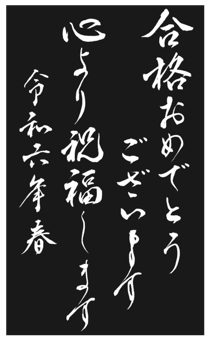 合格おめでとう
ございます
心より祝福します
令和六年春